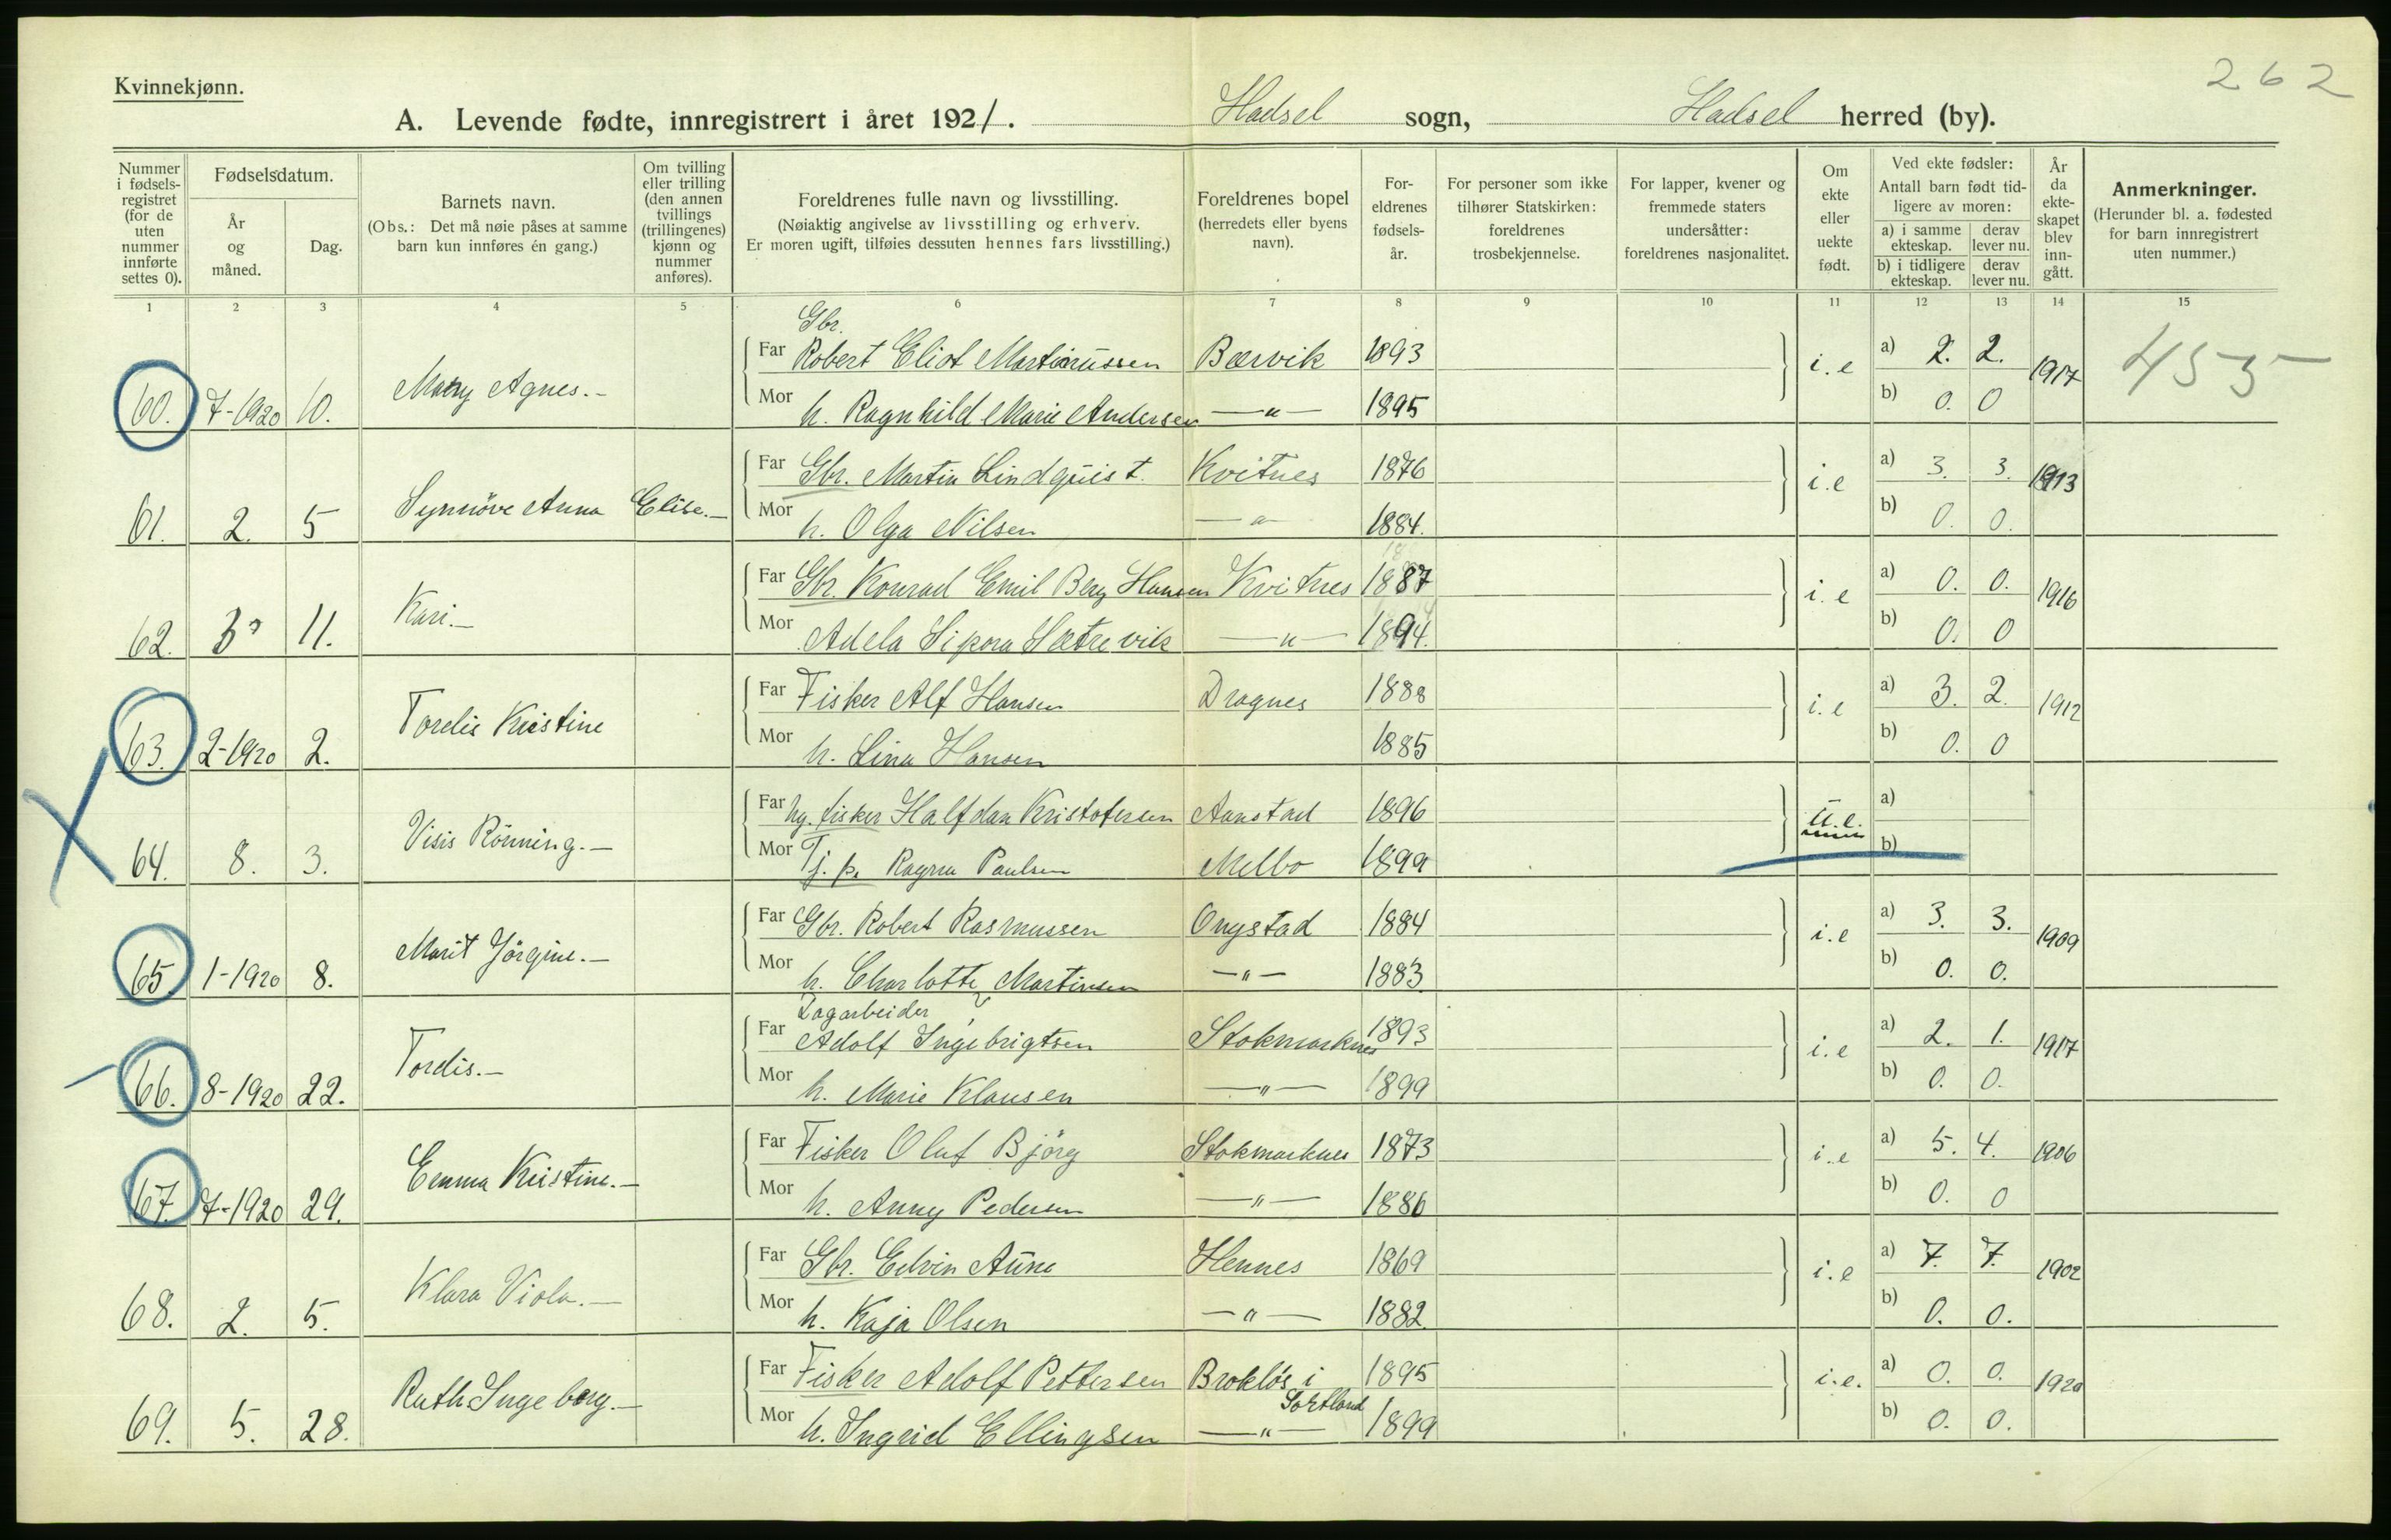 262
Kvinnekjønn.
A. Levende fødte, innregistrert i året 1921. Hadsel sogn, Hadsel herred (by).
Nummer i fødselsregistret (for de uten nummer innførte settes 0).
Fødselsdatum.
År og måned.
Dag.
Barnets navn.
(Obs.: Det må nøie påses at samme barn kun innføres én gang.)
Om tvilling eller trilling (den annen tvillings (trillingenes) kjønn og nummer anføres).
Foreldrenes fulle navn og livsstilling.
(Nøiaktig angivelse av livsstilling og erhverv.
Er moren ugift, tilføies dessuten hennes fars livsstilling.)
Foreldrenes bopel
(herredets eller byens navn).
Foreldrenes fødselsår.
For personer som ikke tilhører Statskirken: foreldrenes trosbekjennelse.
For lapper, kvener og fremmede staters undersåtter: foreldrenes nasjonalitet.
Om ekte eller uekte født.
Ved ekte fødsler:
Antall barn født tidligere av moren:
a) i samme ekteskap. derav lever nu.
b) i tidligere ekteskap. derav lever nu.
År da ekteskapet blev inngått.
Anmerkninger.
(Herunder bl. a. fødested for barn innregistrert uten nummer.)
1 2 3 4 5 6 7 8 9 10 11 12 13 14 15
Gbr.
Far Robert Eliot Martinussen Bærvik 1893 i.e a) 2. 2. 1917 455
60. 7-1920 10. Mary Agnes.-
Mor h. Ragnhild Marie Andersen —"— 1895 b) 0. 0
Far Gbr. Martin Lindquist. Kvitnes 1876 i.e a) 3. 3. 1913
61. 2. 5 Synnöve Anna Elise.-
Mor h. Olga Nilsen —"— 1884. b) 0. 0.
Far Gbr. Konrad Emil Berg Hansen Kvitnes 1887 i.e a) 0. 0. 1916
62. 3 11. Kari.-
Mor Adela Sipora Sætrevik —"— 1894. b) 0. 0
Far Fisker Alf Hansen Dragnes 1888 i.e a) 3. 2. 1912
63. 2-1920 2. Tordis Kristine
Mor h. Lina Hansen 1885 b) 0. 0
Far Ug. fisker Halfdan Kristofersen Aanstad 1896 u.e. a)
64. 8. 3. Visis Rönning.-
Mor Tj. p. Ragna Paulsen Melbo 1899 b)
Far Gbr. Robert Rasmussen Ongstad 1884 i.e a) 3. 3. 1909
65 1-1920 8. Marit Jörgine.-
Mor h. Charlotte Martinsen —"— 1883 b) 0. 0.
Lagarbeider
Far Adolf Ingebrigtsen Stokmarknes 1893 i.e a) 2. 1. 1917
66. 8-1920 22. Tordis.-
Mor h. Marie Klausen —"— 1899 b) 0. 0.
Far Fisker Oluf Björg Stokmarknes 1873 i.e a) 5. 4. 1906
67. 7-1920 29. Emma Kristine.-
Mor h. Anny Pedersen —"— 1886 b) 0. 0
Far Gbr. Edvin Aune Hennes 1869 i.e a) 7. 7. 1902
68. 2. 5. Klara Viola.-
Mor h. Kaja Olsen —"— 1882 b) 0. 0.
Far Fisker Adolf Pettersen Brokløs i Sortland 1895 i.e. a) 0. 0. 1920
69. 5. 28. Ruth Ingeborg.-
Mor h. Ingrid Ellingsen —"— 1899 b) 0. 0.